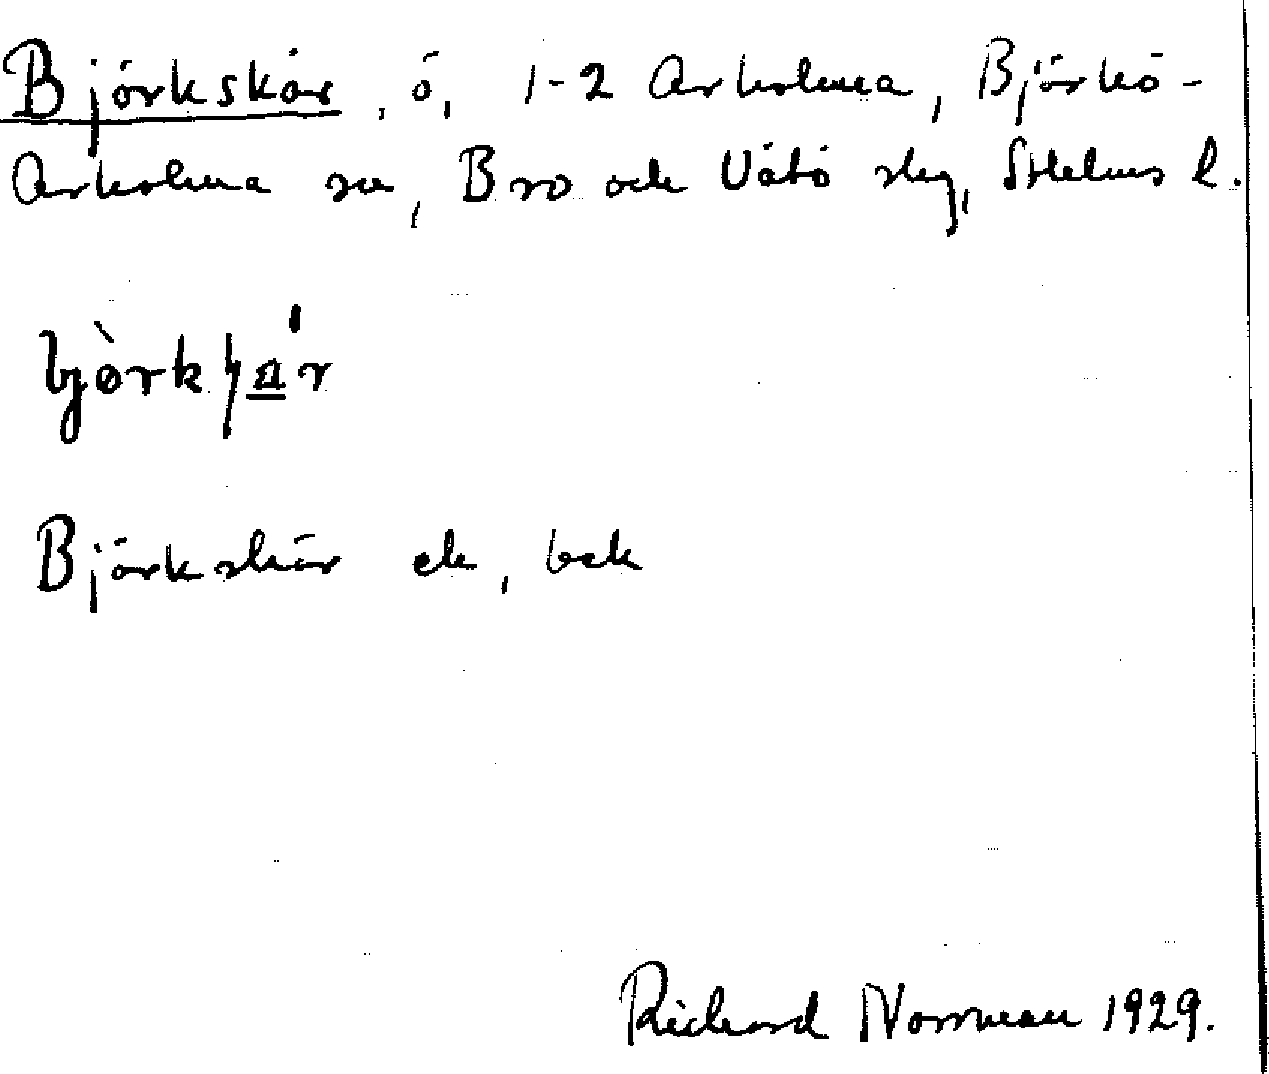 Björkskär, ö, 1-2 Arholma, Björkö-
Arholma sn, Bro och Vätö slg, Sthlms l.
Björkskär ek, bek
Richard Norrman 1929.